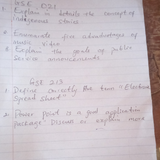 GSE 1D1
1. Explain in details the concept of
indigenous stories
2. Enumerate five advantages of
Audio Video
3. Explain the goals of public
Service announcements
GSE 213
1. Define correctly the term "Electronic
Spread Sheet"
2. Power point is a good application
package. Discuss or explain more